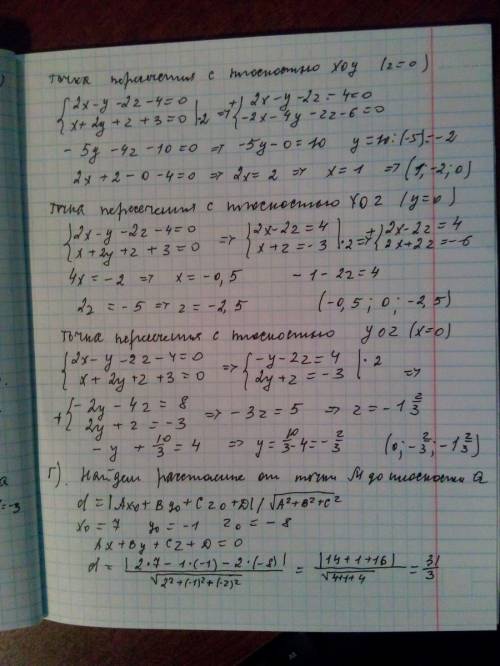 точка пересечения с плоскостью XOY (z=0)
{2x-y-2z-4=0 |  => +{2x-y-2z-4=0
{x+2y+z+3=0 |·2 {-2x-4y-2z-6=0
-5y-4z-10=0 => -5y-0=10 y=10:(-5)=-2
2x+2-0-4=0 => 2x=2 => x=1 => (1;-2;0)
точка пересечения с плоскостью XOZ (y=0)
{2x-y-2z-4=0 => {2x-2z=4 | => +{2x-2z=4
{x+2y+z+3=0 {x+z=-3 |·2 {2x+2z=-6
4x=-2 => x=-0,5 -1-2z=4
2z=-5 => z=-2,5 (-0,5; 0; -2,5)
точка пересечения с плоскостью YOZ (x=0)
{2x-y-2z-4=0 => {-y-2z=4 |·2 =>
{x+2y+z+3=0 {2y+z=-3
+{-2y-4z=8 => -3z=5 => z=-1 2/3
{2y+z=-3
-y+10/3=4 => y=10/3-4=-2/3 (0;-2/3;-1 2/3)
Г). Найдем расстояние от точки M до плоскости Q
d=|Ax₀+By₀+Cz₀+D|/√A²+B²+C²
x₀=7 y₀=-1 z₀=-8
Ax+By+Cz+D=0
d=|2·7-1·(-1)-2·(-8)|/√2²+(-1)²+(-2)² = |14+1+16|/√4+1+4 = 31/3